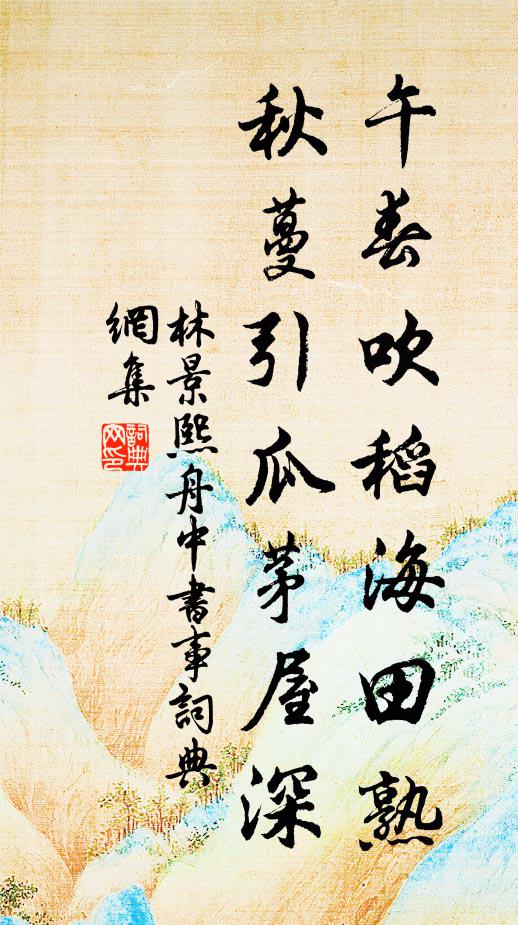 午舂吹稻海田熟
秋蔓引瓜茅屋深
林景熙舟中書事詞典
網集
詞典
网印